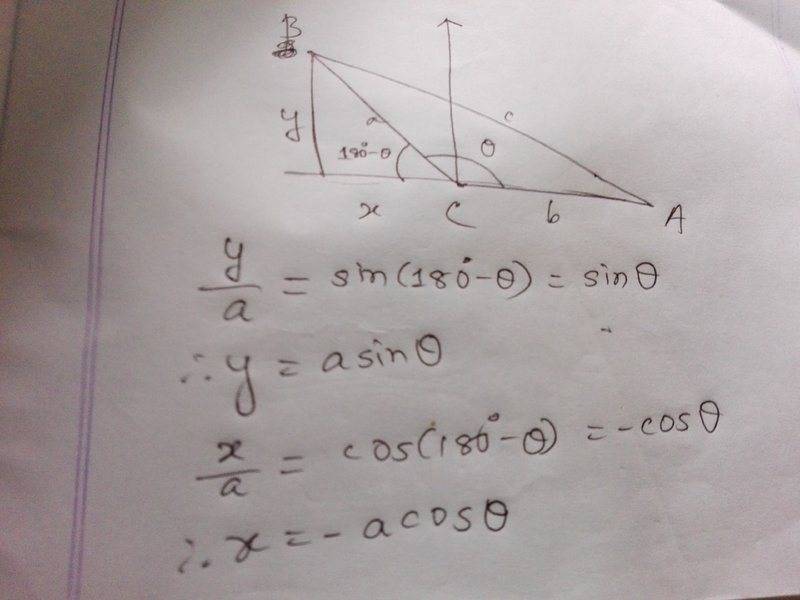 B
y
a
c
180°-θ
θ
x
C
b
A
y/a = sin(180°-θ) = sinθ
∴ y = a sinθ
x/a = cos(180°-θ) = -cosθ
∴ x = - a cosθ